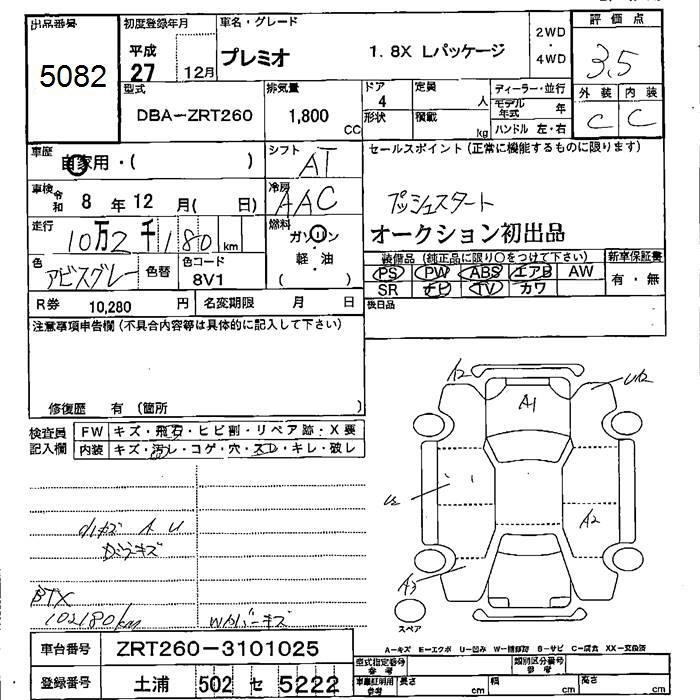 出品番号
5082
初度登録年月
平成
27 12月
車名・グレード
プレミオ 1.8X Lパッケージ
2WD
・
4WD
評価点
3.5
外装 内装
C C
型式
DBA-ZRT260
排気量
1,800 CC
ドア
4
形状
定員
人
積載
kg
ディーラー・並行
モデル年式 年
ハンドル 左・右
車歴
自家用・( )
シフト
AT
車検 令和 8 年 12 月( 日)
冷房
AAC
走行
10万2千180 km
燃料
ガソリン
軽・油
( )
色
アビスグレー
色替
色コード
8V1
R券 10,280 円
名変期限 月 日
セールスポイント(正常に機能するものに限ります)
プッシュスタート
オークション初出品
装備品(純正品に限り○をつけて下さい)
PS PW ABS エアB AW
SR ナビ TV カワ
新車保証書
有・無
後日品
注意事項申告欄(不具合内容等は具体的に記入して下さい)
修復歴 有 (箇所 )
検査員記入欄
FW キズ・飛石・ヒビ割・リペア跡・X要
内装 キズ・汚レ・コゲ・穴・スレ・キレ・破レ
小キズ A U
BTX
102180km
A2
A1
U2
A2
A3
スペア
A-キズ E-エクボ U-凹み W-補修跡 B-サビ C-腐食 XX-交換済
車台番号 ZRT260-3101025
登録番号 土浦 502 セ 5222
型式指定番号 参考
類別区分番号 参考
車庫証明用 参考
長さ cm 幅 cm 高さ cm